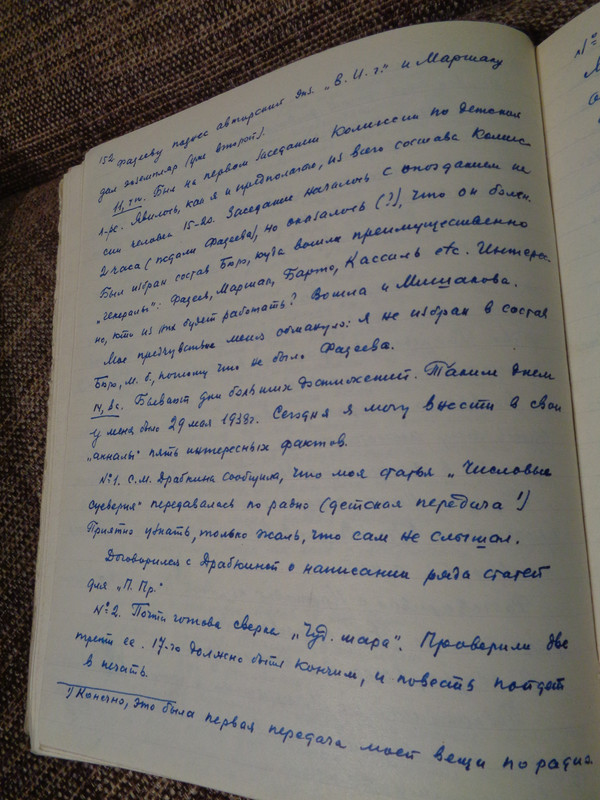 152 Фадееву парнес авторский экз. „В. И. г." и Маршаку
дал экземпляр (уже второй).
11, Был на первом заседании Комиссии по детской
л-ре. Явилось, как я и предполагал, из всего состава Комис-
сии человек 15-20. Заседание началось с опозданием на
2 часа (ждали Фадеева), но оказалось (?), что он болен.
Был избран состав Бюро, куда вошли преимущественно
„генералы": Фадеев, Маршак, Барто, Кассиль etc. Интерес-
но, кто из них будет работать? Вошла и Мишакова.
Мое предчувствие меня обмануло: я не избран в состав
Бюро, м. б., потому что не было Фадеева.
Бывают дни больших достижений. Таким днем
у меня был 29 мая 1938г. Сегодня я могу внести в свои
„анналы" пять интересных фактов.
№1. С.М. Драбкина сообщила, что моя статья „Числовые
суеверия" передавалась по радио (детская передача ¹)
Приятно узнать, только жаль, что сам не слышал.
Договорился с Драбкиной о написании ряда статей
для „П. Пр."
№2. Почти готова сверка „Чуд. шара". Проверили две
трети ее. 17-го должно быть кончим, и повесть пойдет
в печать.
¹) Конечно, это была первая передача моей вещи по радио.
№